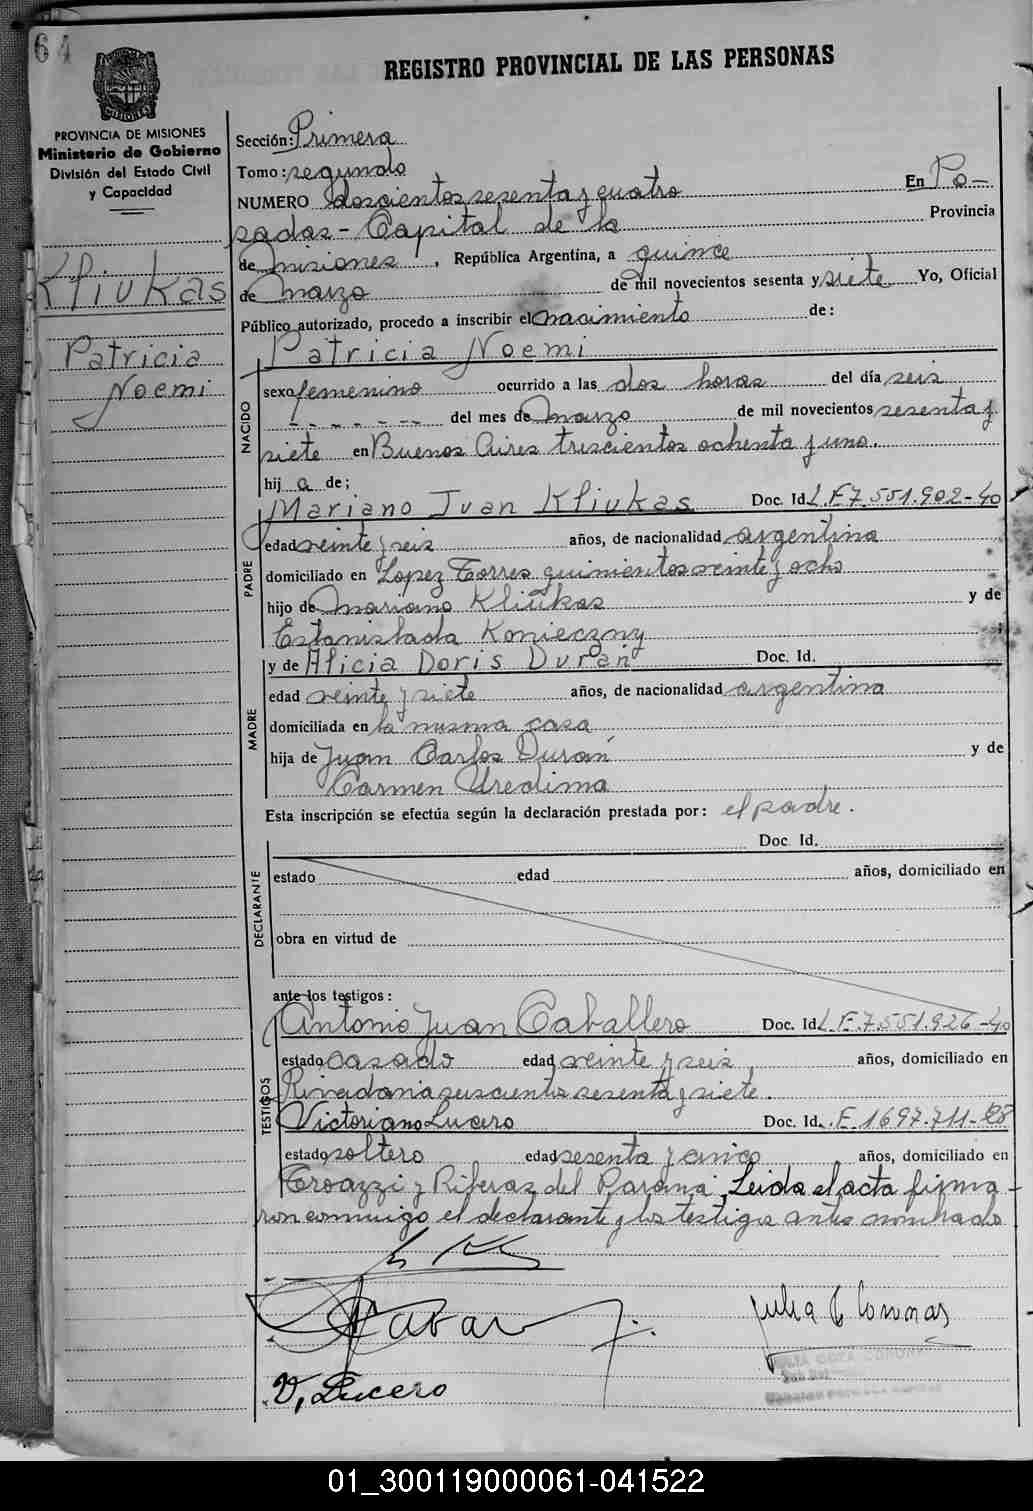 64
REGISTRO PROVINCIAL DE LAS PERSONAS
PROVINCIA DE MISIONES
Ministerio de Gobierno
División del Estado Civil
y Capacidad
Kliukas
Patricia
Noemi
Sección: Primera
Tomo: segundo
NUMERO doscientos sesenta y cuatro En Po-
sadas - Capital de la Provincia
de misiones, República Argentina, a quince
de marzo de mil novecientos sesenta y siete Yo, Oficial
Público autorizado, procedo a inscribir el nacimiento de:
Patricia Noemi
NACIDO
sexo femenino ocurrido a las dos horas del día seis
- - - - - - - del mes de marzo de mil novecientos sesenta y
siete en Buenos Aires trescientos ochenta y uno.
hij a de;
PADRE
Mariano Juan Kliukas Doc. Id. L.E 7.551.902-40
edad veinte y seis años, de nacionalidad argentina
domiciliado en Lopez Torres quinientos veinte y ocho
hijo de mariano Kliukas y de
Estanislada Konieczny
MADRE
y de Alicia Doris Duran Doc. Id.
edad veinte y siete años, de nacionalidad argentina
domiciliada en la misma casa
hija de Juan Carlos Durán y de
Carmen
Esta inscripción se efectúa según la declaración prestada por: el padre.
DECLARANTE
Doc. Id.
estado edad años, domiciliado en
obra en virtud de
ante los testigos:
TESTIGOS
Antonio Juan Caballero Doc. Id. L.E. 7.551.926-40
estado casado edad veinte y seis años, domiciliado en
Rivadavia seiscientos sesenta y siete.
Victoriano Lucero Doc. Id. E. 1697.711
estado soltero edad sesenta y cinco años, domiciliado en
y Riberas del Paraná. Leida el acta firma-
ron conmigo el declarante y los testigos antes nominados
V. Lucero
01_300119000061-041522